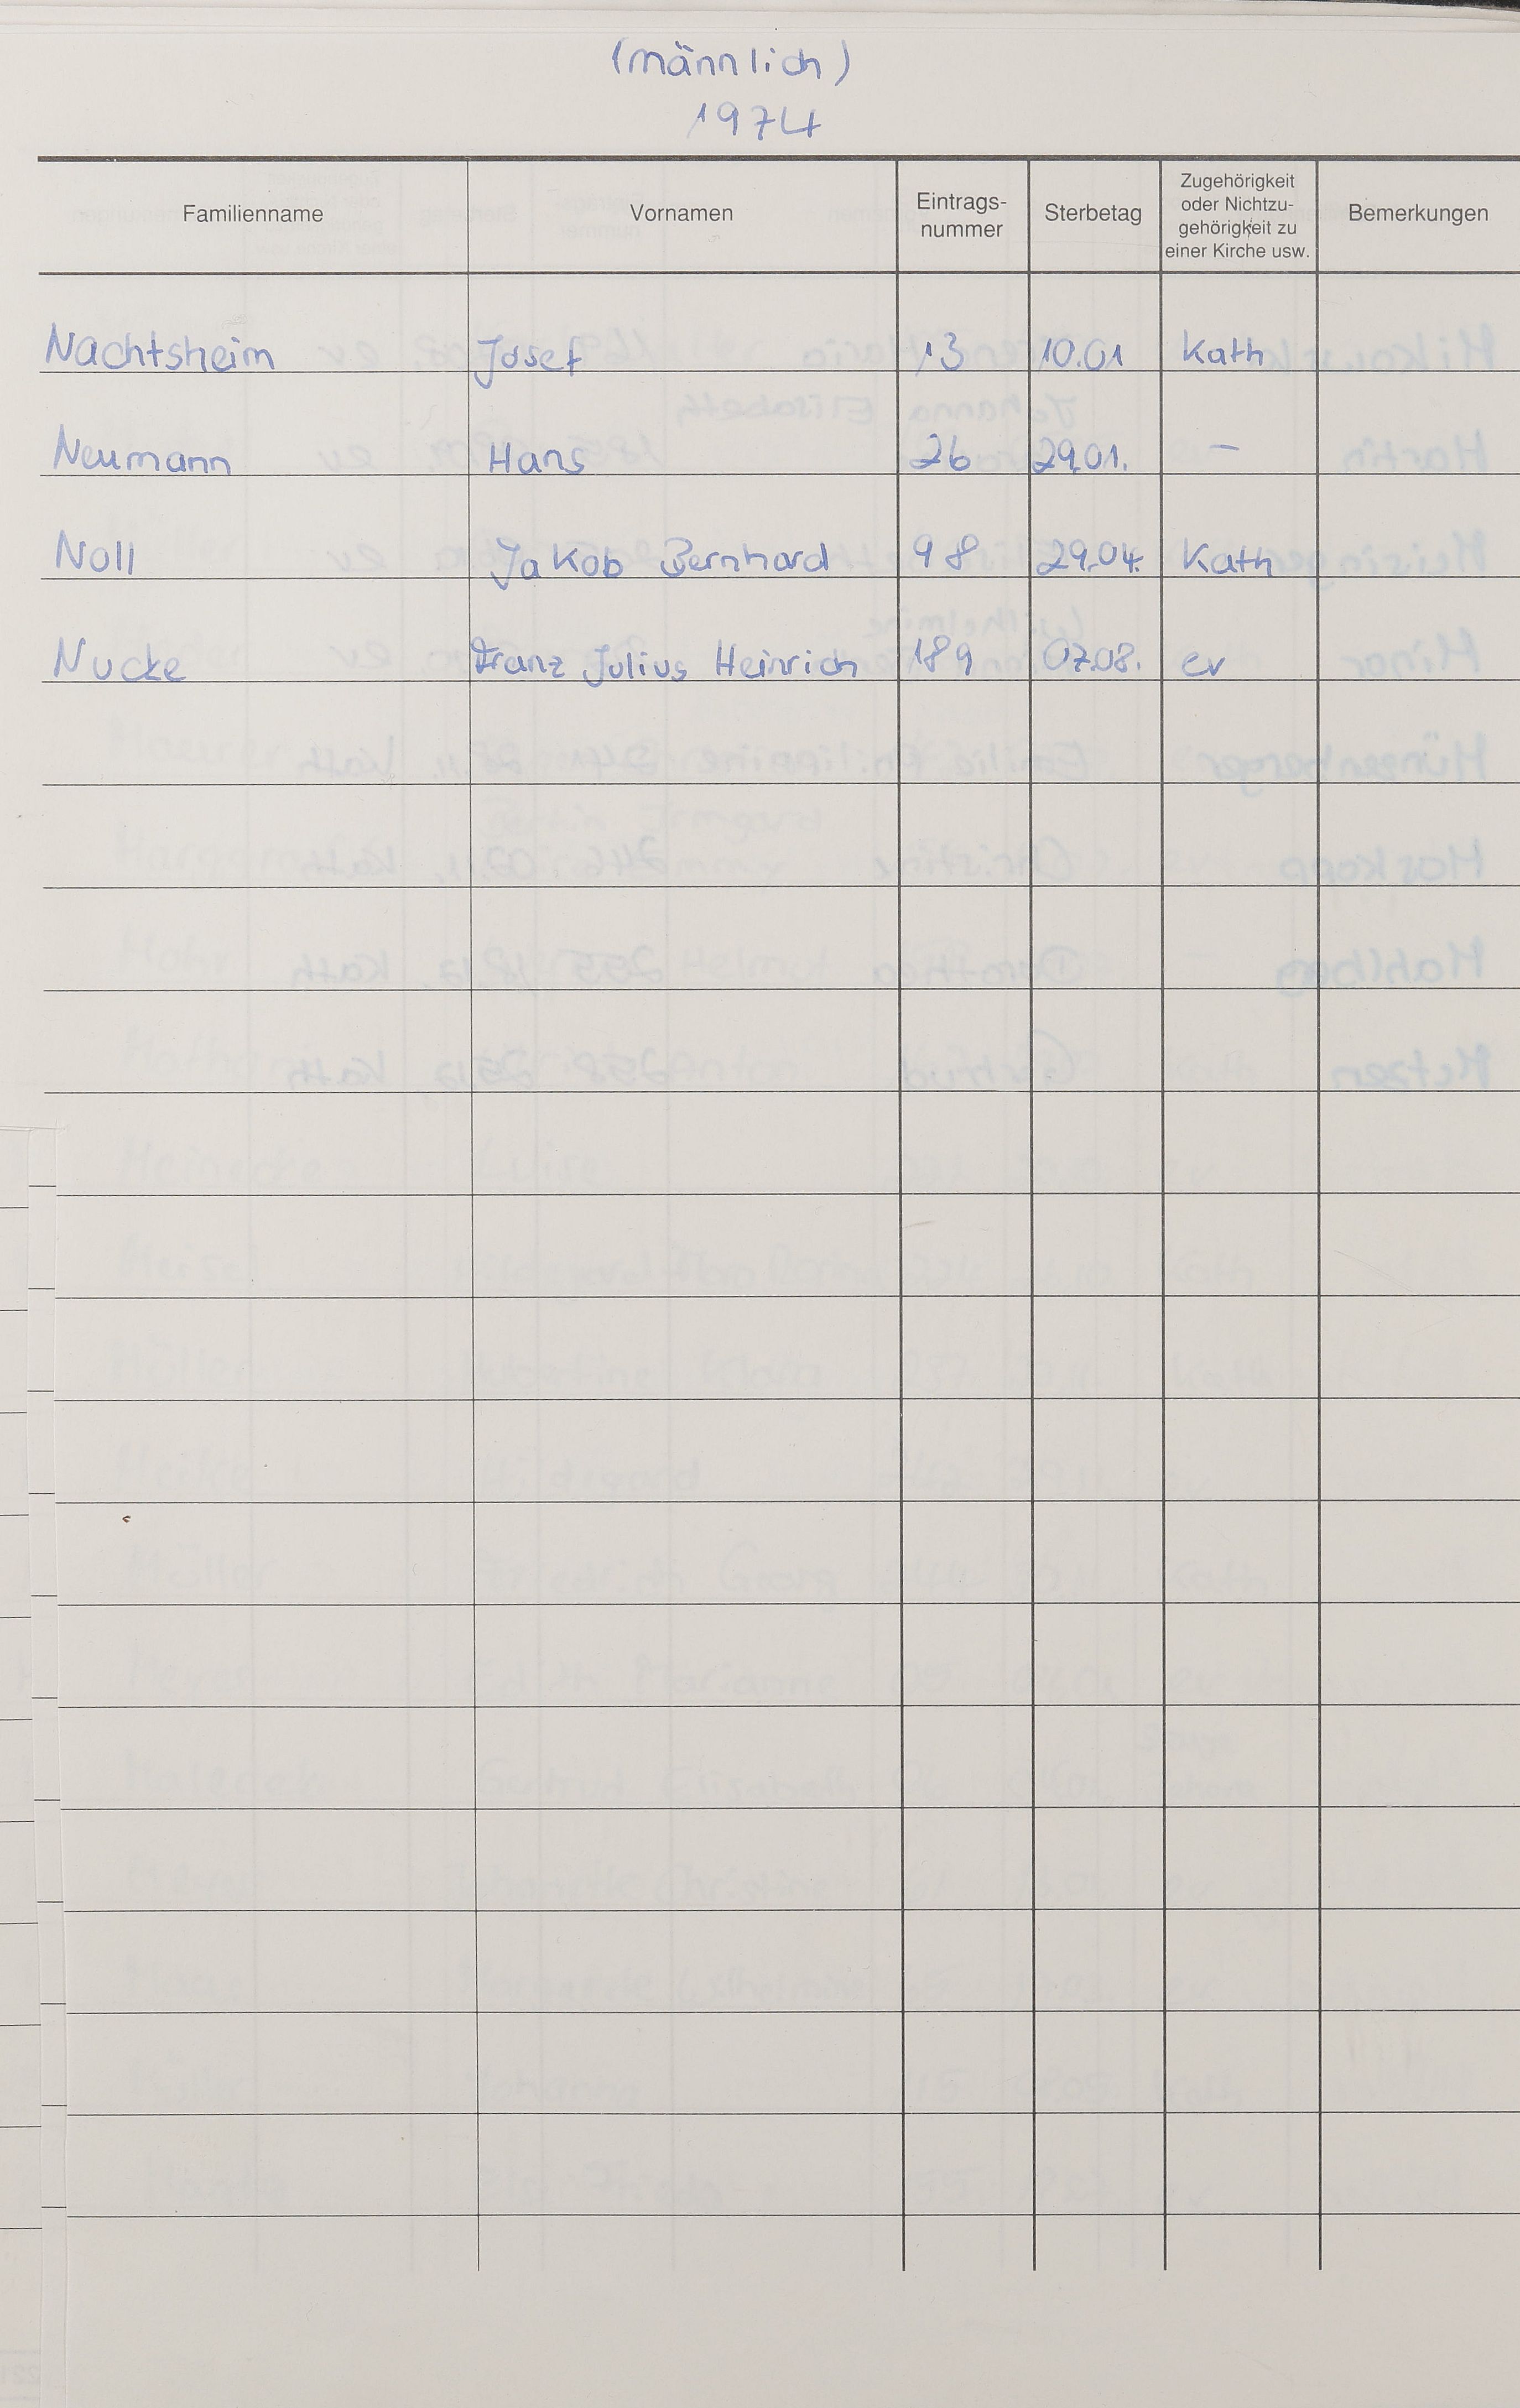 (männlich)
1974
Familienname Vornamen Eintrags-nummer Sterbetag Zugehörigkeit oder Nichtzu-gehörigkeit zu einer Kirche usw. Bemerkungen
Nachtsheim Josef 13 10.01 Kath
Neumann Hans 26 29.01. –
Noll Jakob Bernhard 98 29.04. Kath
Nucke Franz Julius Heinrich 189 07.08. ev